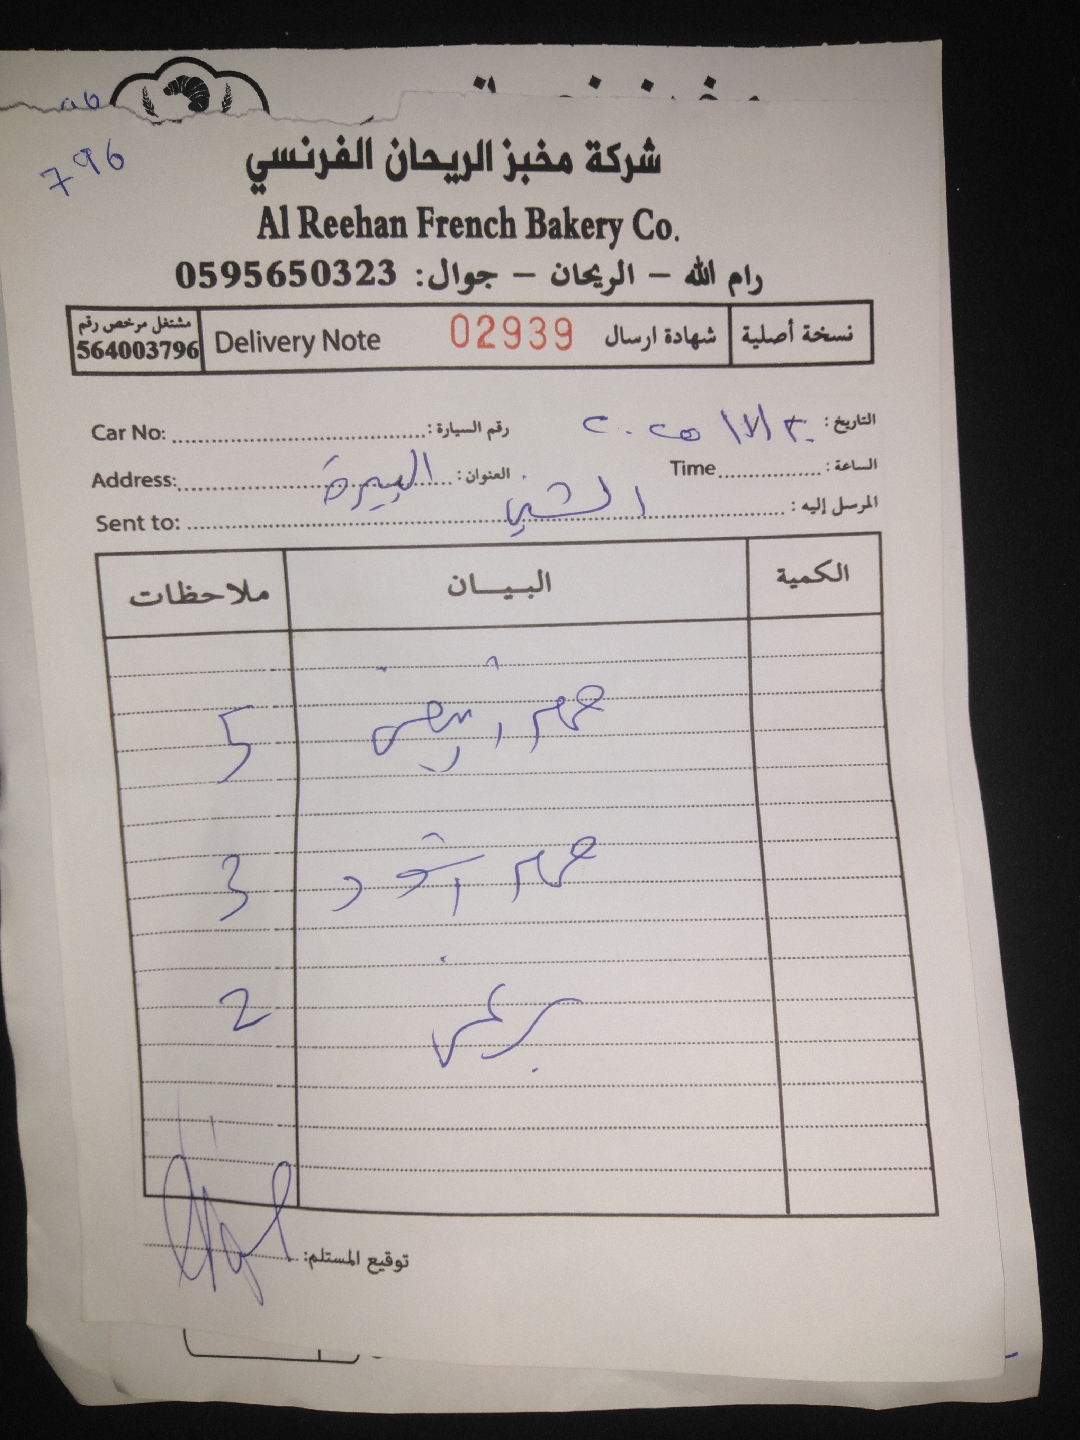 796
شركة مخبز الريحان الفرنسي
Al Reehan French Bakery Co.
رام الله - الريحان - جوال: 0595650323
نسخة أصلية
شهادة ارسال 02939 Delivery Note
مشتغل مرخص رقم
564003796
التاريخ: ٢٠٢٥ ٣٠/١٧
رقم السيارة: Car No:
الساعة: Time
العنوان: البيرة Address:
المرسل إليه: Sent to:
الكمية البيـــان ملاحظات
أبيض 5
3
برغر 2
توقيع المستلم: